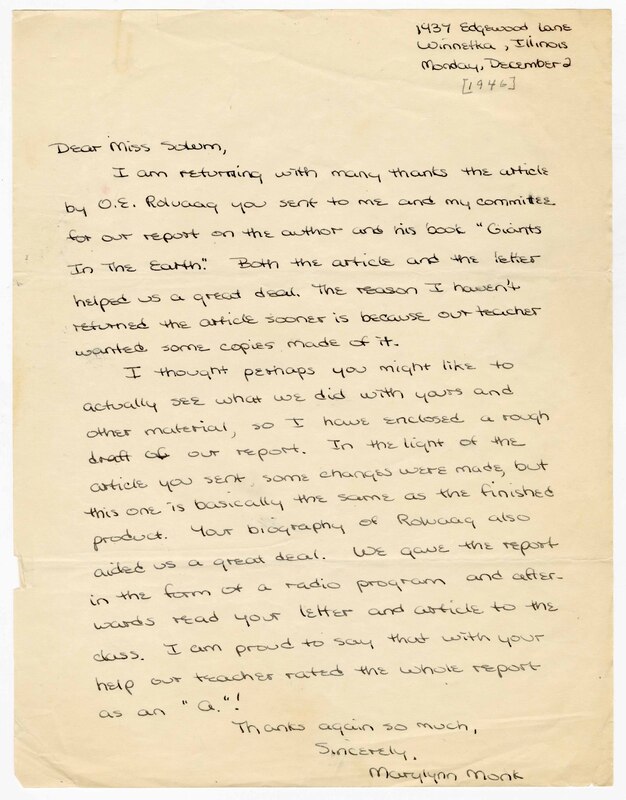 1937 Edgewood Lane
Winnetka, Illinois
Monday, December 2
[1946]
Dear Miss Solum,
I am returning with many thanks the article
by O.E. Rolvaag you sent to me and my committee
for our report on the author and his book "Giants
In The Earth." Both the article and the letter
helped us a great deal. The reason I haven't
returned the article sooner is because our teacher
wanted some copies made of it.
I thought perhaps you might like to
actually see what we did with yours and
other material, so I have enclosed a rough
draft of our report. In the light of the
article you sent, some changes were made, but
this one is basically the same as the finished
product. Your biography of Rolvaag also
aided us a great deal. We gave the report
in the form of a radio program and after-
wards read your letter and article to the
class. I am proud to say that with your
help our teacher rated the whole report
as an "A."!
Thanks again so much,
Sincerely,
Marylynn Monk